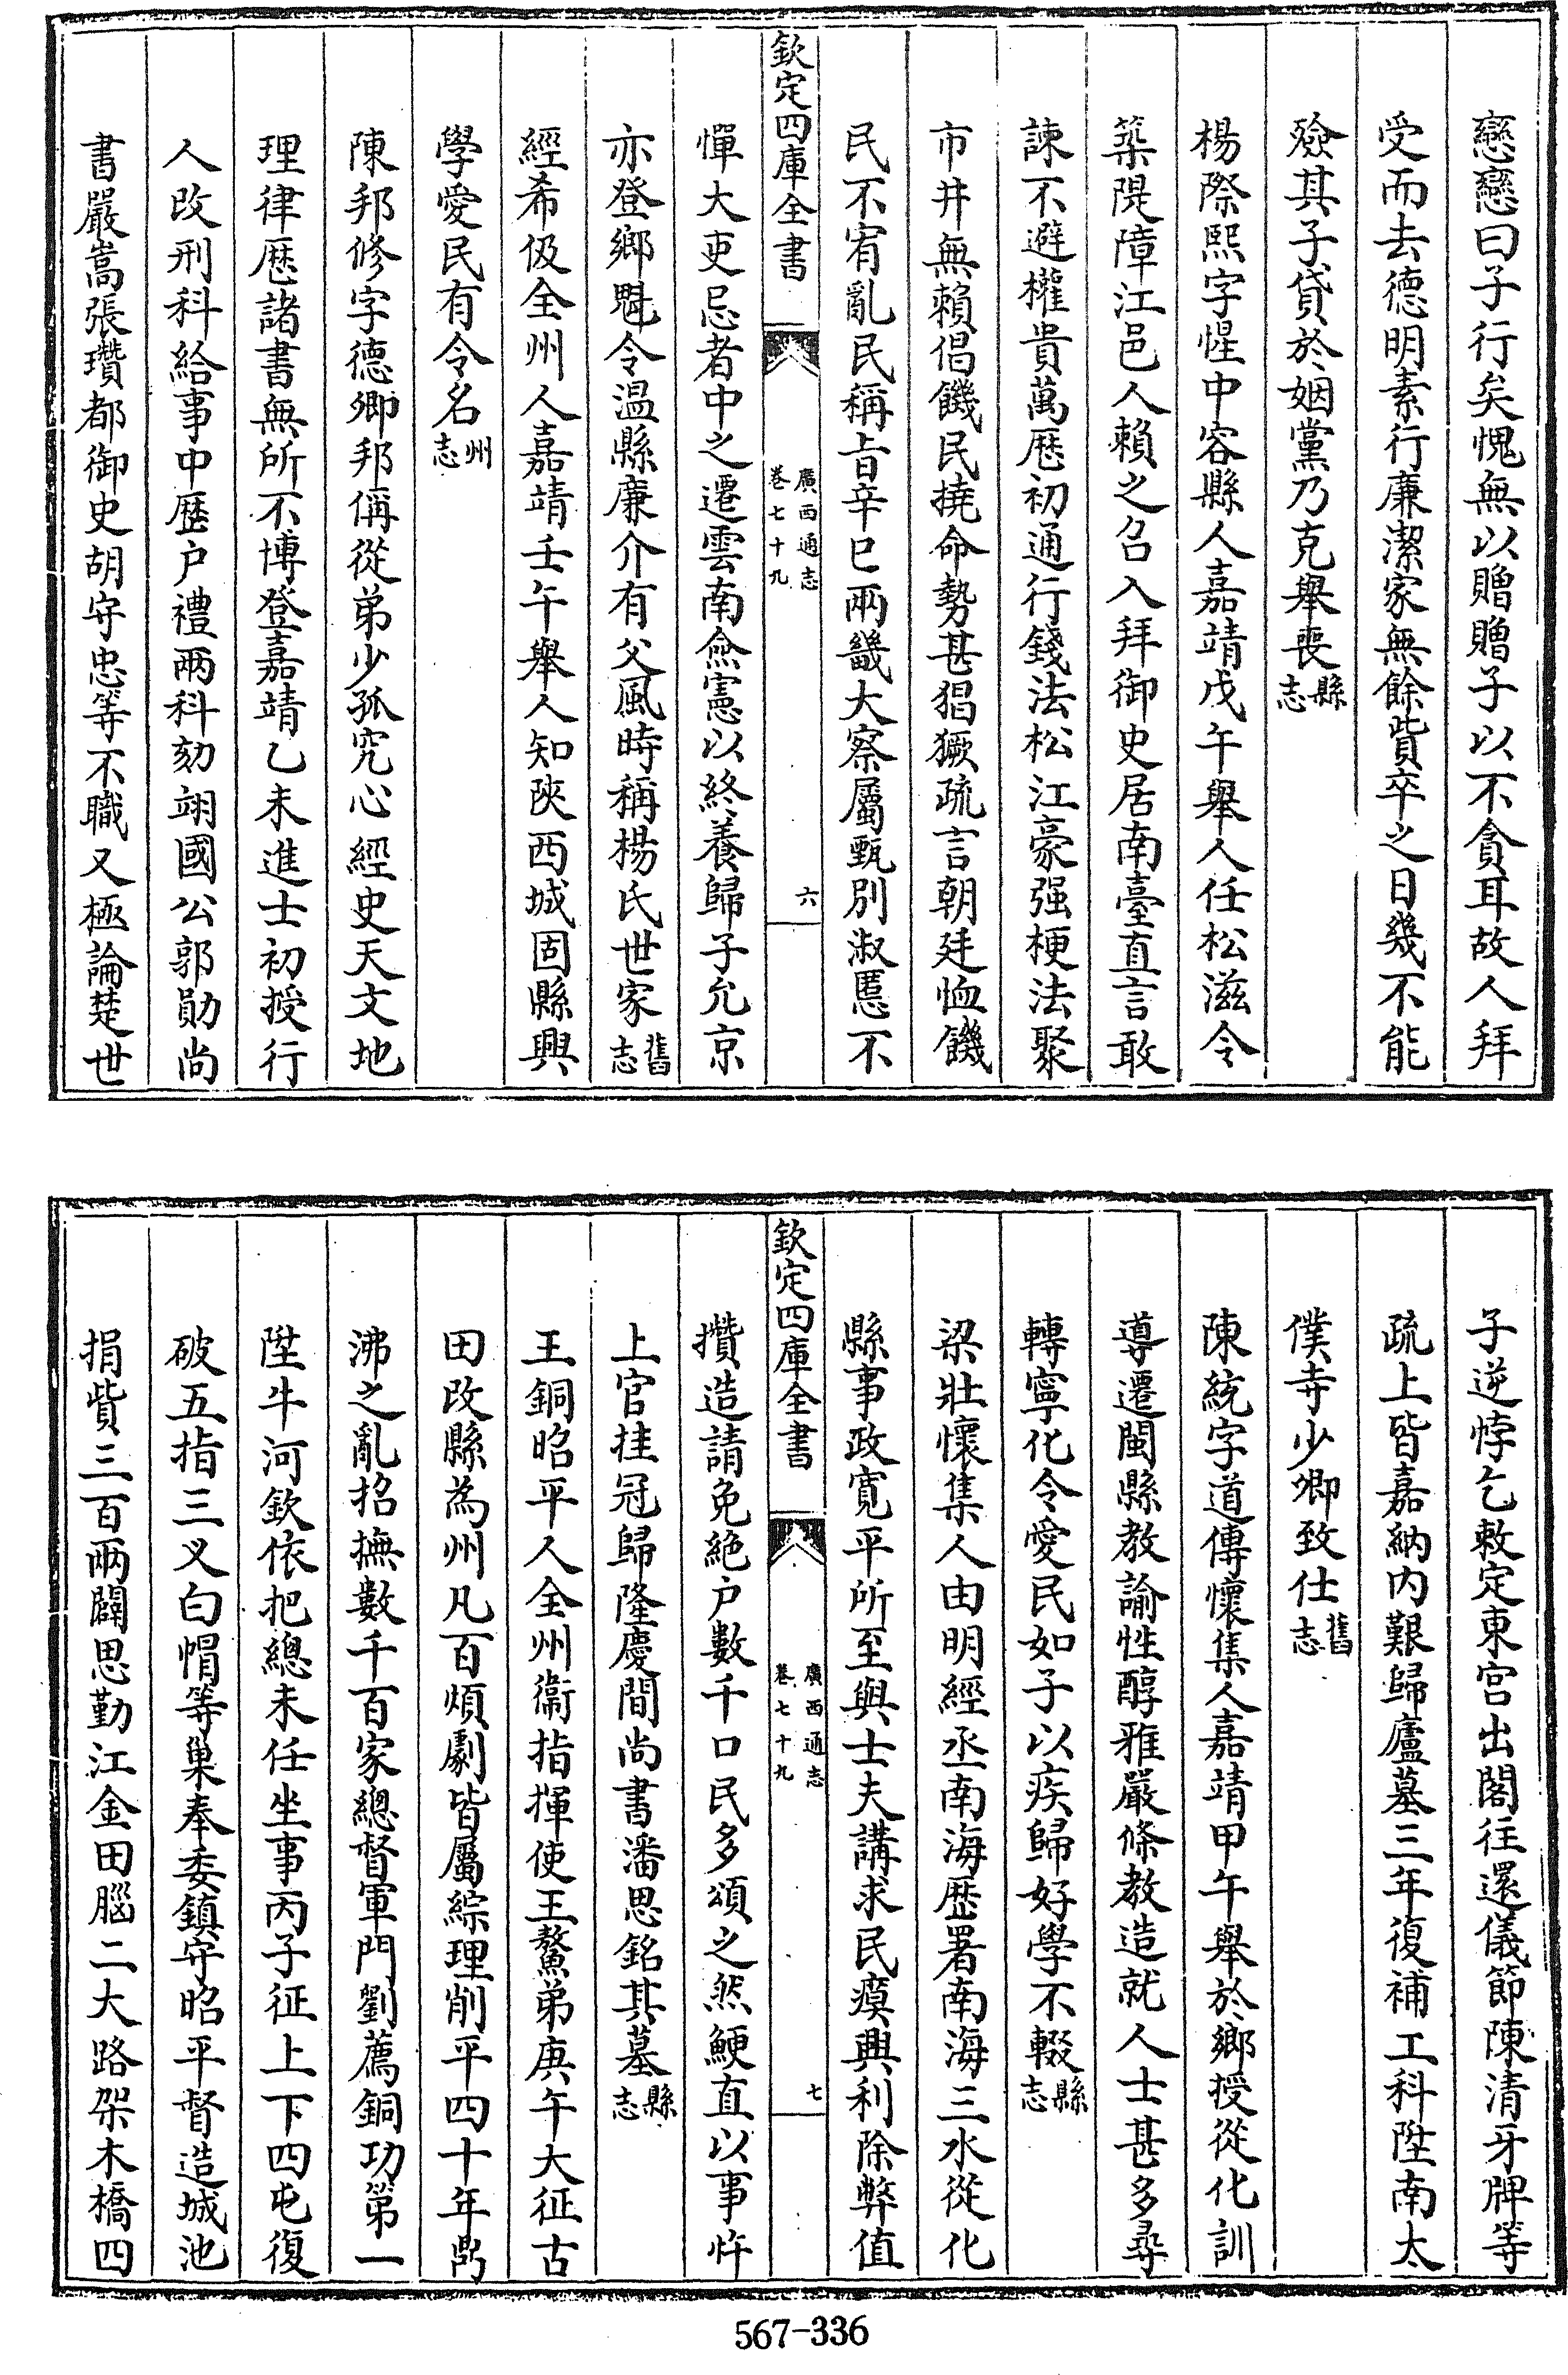 戀戀曰子行矣愧無以贈贈子以不貪耳故人拜
受而去德明素行廉潔家無餘貲卒之日幾不能
殮其子貸於姻黨乃克舉喪縣志
楊際熙字惺中容縣人嘉靖戊午舉人任松滋令
築隄障江邑人賴之召入拜御史居南臺直言敢
諫不避權貴萬歴初通行錢法松江豪强梗法聚
市井無賴倡饑民撓命勢甚猖獗疏言朝廷恤饑
民不宥亂民稱旨辛巳兩畿大察屬甄别淑慝不
欽定四庫全書
廣西通志
卷七十九
六
憚大吏忌者中之遷雲南僉憲以終養歸子允京
亦登鄉魁令温縣廉介有父風時稱楊氏世家舊志
經希伋全州人嘉靖壬午舉人知陜西城固縣興
學愛民有令名州志
陳邦修字德卿邦偁從弟少孤究心經史天文地
理律歴諸書無所不博登嘉靖乙未進士初授行
人改刑科給事中歴户禮兩科劾翊國公郭勛尚
書嚴嵩張瓚都御史胡守忠等不職又極論楚世
子逆悖乞敕定東宫出閣往還儀節陳清牙牌等
疏上皆嘉納内艱歸廬墓三年復補工科陞南太
僕寺少卿致仕舊志
陳統字道傳懷集人嘉靖甲午舉於鄉授從化訓
導遷閩縣教諭性醇雅嚴條教造就人士甚多尋
轉寧化令愛民如子以疾歸好學不輟縣志
梁壯懷集人由明經丞南海歴署南海三水從化
縣事政寛平所至與士夫講求民瘼興利除弊值
欽定四庫全書
廣西通志
卷七十九
七
攢造請免絶户數千口民多頌之然鯁直以事忤
上官挂冠歸隆慶間尚書潘思銘其墓縣志
王銅昭平人全州衞指揮使王鰲弟庚午大征古
田改縣為州凡百煩劇皆屬綜理削平四十年鼎
沸之亂招撫數千百家總督軍門劉薦銅功第一
陞牛河欽依把總未任坐事丙子征上下四屯復
破五指三义白帽等巢奉委鎮守昭平督造城池
捐貲三百兩闢思勤江金田腦二大路架木橋四
567-336